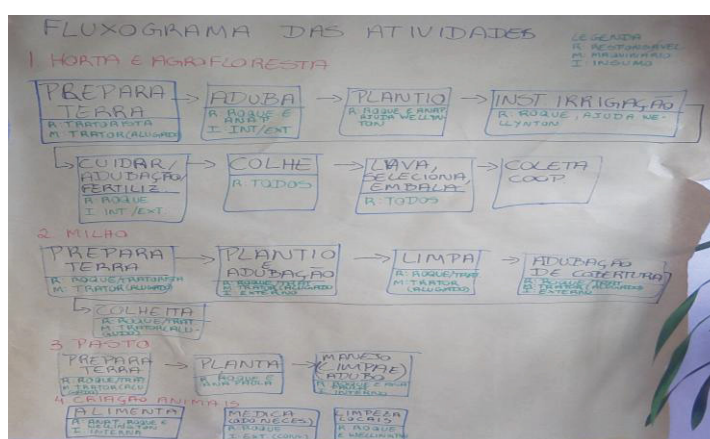 FLUXOGRAMA DAS ATIVIDADES
LEGENDA
R RESPONSÁVEL
M MAQUINÁRIO
I INSUMO
1 HORTA E AGROFLORESTA
PREPARA TERRA
R: TRATORISTA
M: TRATOR (ALUGADO)
ADUBA
R ROQUE E ANAP
I INT/EXT
PLANTIO
R: ROQUE E ANAP
AJUDA WELLYNTON
INST IRRIGAÇÃO
R: ROQUE, AJUDA WELLYNTON
CUIDAR/
ADUBAÇÃO/
FERTILIZ
R ROQUE
I INT/EXT
COLHE
R: TODOS
LAVA,
SELECIONA,
EMBALA
R: TODOS
COLETA
COOP
2 MILHO
PREPARA
TERRA
R ROQUE/TRATORISTA
M TRATOR (ALUGADO)
PLANTIO
E
ADUBAÇÃO
R ROQUE/TRAT
M TRATOR (ALUGADO)
I EXTERNO
LIMPA
R: ROQUE/TRAT
M: TRATOR
(ALUGADO)
ADUBAÇÃO
DE COBERTURA
R ROQUE/TRAT
M TRATOR (ALUGADO)
I EXTERNO
COLHEITA
R ROQUE/TRAT
M: TRATOR (ALUGADO)
3 PASTO
PREPARA
TERRA
R: ROQUE/TRAT
M TRATOR (ALUGADO)
PLANTA
ROQUE E
MANEJO
(LIMPAE)
ADUBO
R ROQUE E ANA
I INTERNO
4 CRIAÇÃO ANIMAIS
ALIMENTA
R: ANAP, ROQUE E
WELLINGTON
I INTERNA
MEDICA
R ROQUE
LIMPEZA
LOCAIS
R ROQUE
E WELLINGTON